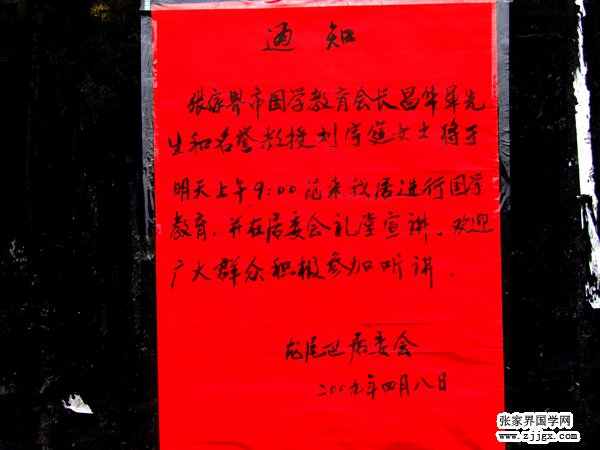 通知
张家界市国学教育会长昌华军先
生和名誉教授刘宇庭女士将于
明天上午9:00范来我居进行国学
教育,并在居委会礼堂宣讲。欢迎
广大群众积极参加听讲。
龙尾巴居委会
二00九年四月八日
张家界国学网
www.zjjgx.com